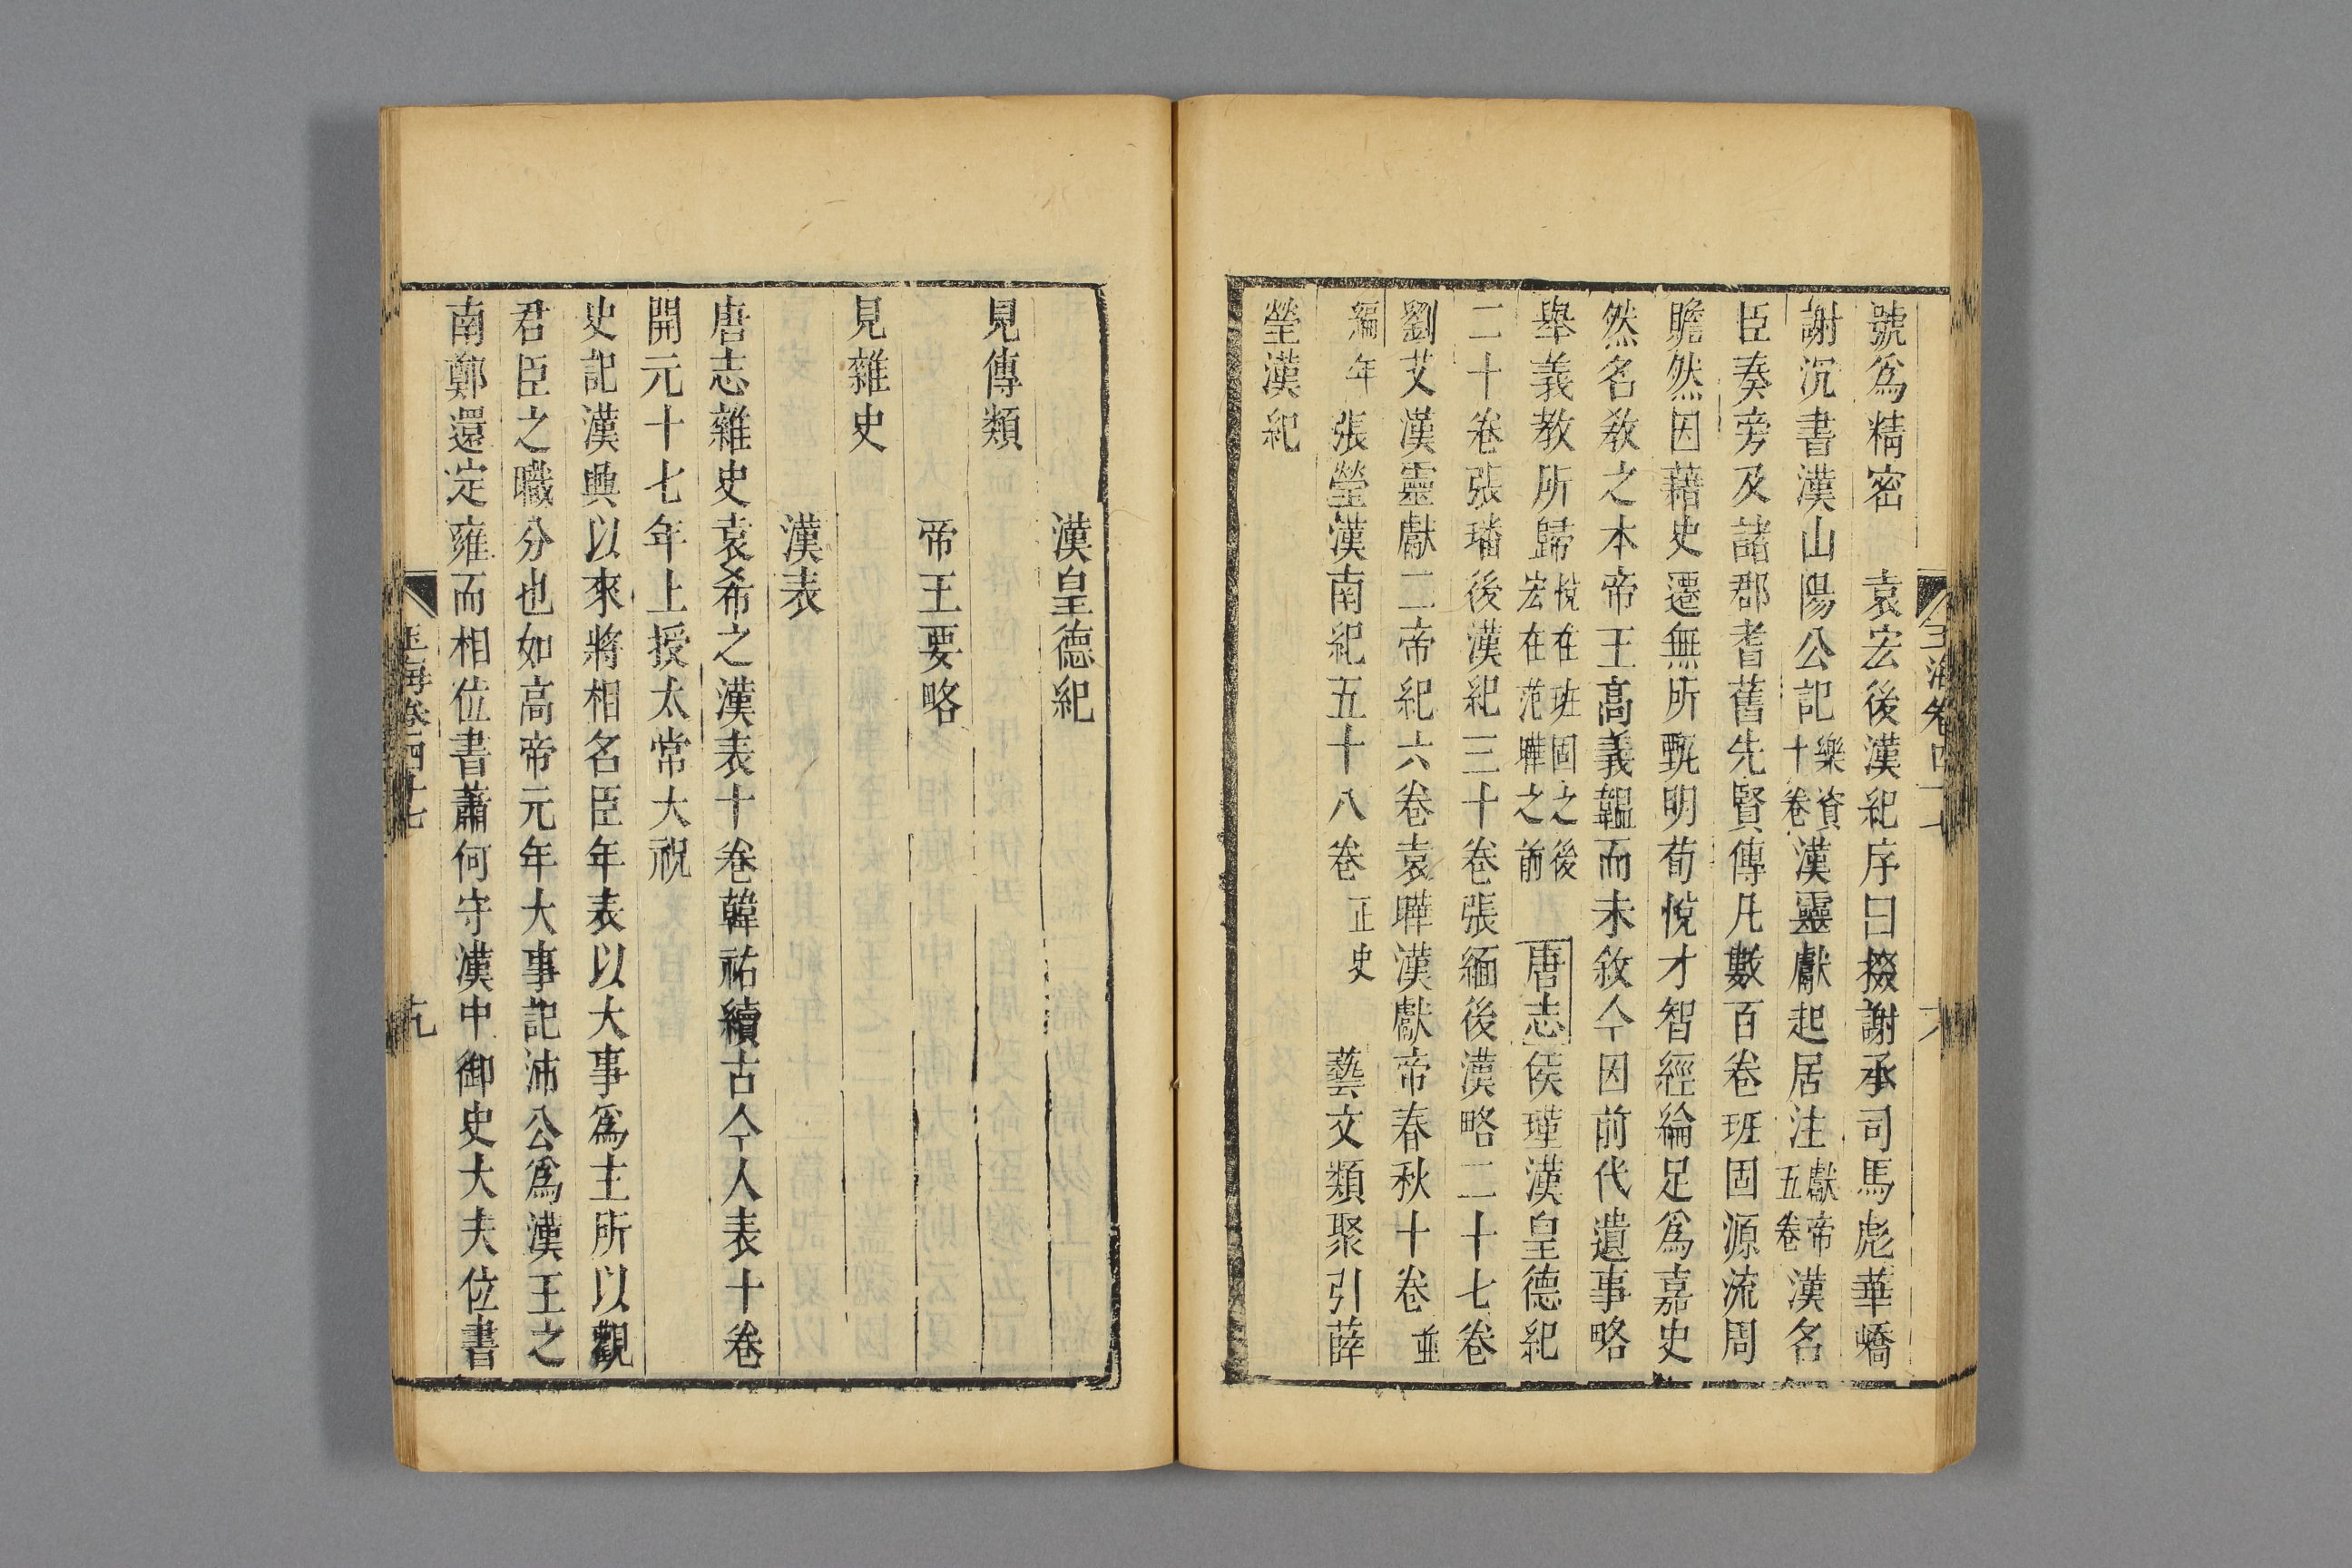 號爲精密　袁宏後漢紀序曰掇謝承司馬彪華嶠
謝沉書漢山陽公記樂資十卷漢靈獻起居注獻帝五卷漢名
臣奏旁及諸郡耆舊先賢傳凡數百卷班固源流周
贍然因藉史遷無所甄明荀悅才智經綸足爲嘉史
然名敎之本帝王高義韞而未敘今因前代遺事略
舉義教所歸悅在班固之後宏在范曄之前　唐志侯瑾漢皇德紀
二十卷張璠後漢紀三十卷張緬後漢略二十七卷
劉艾漢靈獻二帝紀六卷袁曄漢獻帝春秋十卷並
編年　張瑩漢南紀五十八卷正史　藝文類聚引薛
瑩漢紀
漢皇德紀
見傳類
帝王要略
見雜史
漢表
唐志雜史袁希之漢表十卷韓祐續古今人表十卷
開元十七年上授太常大祝
史記漢興以來將相名臣年表以大事爲主所以觀
君臣之職分也如高帝元年大事記沛公爲漢王之
南鄭還定雍而相位書蕭何守漢中御史大夫位書
玉海卷四十七